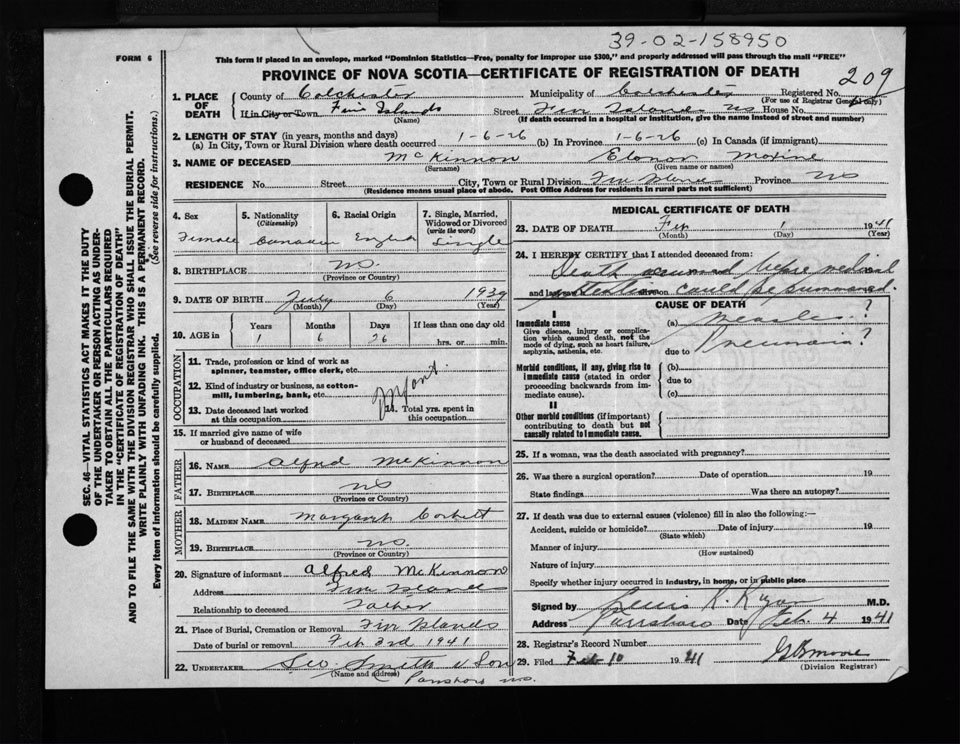 39-02-158950
FORM 6
This form if placed in an envelope, marked "Dominion Statistics—Free, penalty for improper use $300," and properly addressed will pass through the mail "FREE"
PROVINCE OF NOVA SCOTIA—CERTIFICATE OF REGISTRATION OF DEATH
209
1. PLACE OF DEATH
County of Colchester Municipality of Colchester Registered No.
(For use of Registrar General only)
If in City or Town Five Islands Street Five Islands NS House No.
(Name) (If death occurred in a hospital or institution, give the name instead of street and number)
2. LENGTH OF STAY (in years, months and days)
(a) In City, Town or Rural Division where death occurred 1-6-26 (b) In Province 1-6-26 (c) In Canada (if immigrant)
3. NAME OF DECEASED McKinnon Elonor Maxine
(Surname) (Given name or names)
RESIDENCE No. Street City, Town or Rural Division Five Islands Province NS
(Residence means usual place of abode. Post Office Address for residents in rural parts not sufficient)
4. Sex
Female
5. Nationality
(Citizenship)
Canadian
6. Racial Origin
English
7. Single, Married, Widowed or Divorced
(write the word)
Single
8. BIRTHPLACE NS.
(Province or Country)
9. DATE OF BIRTH July 6 1939
(Month) (Day) (Year)
10. AGE in
Years Months Days If less than one day old
1 6 26 hrs. or min.
OCCUPATION
11. Trade, profession or kind of work as spinner, teamster, office clerk, etc.
12. Kind of industry or business, as cotton-mill, lumbering, bank, etc.
Infant.
13. Date deceased last worked at this occupation
14. Total yrs. spent in this occupation
15. If married give name of wife or husband of deceased
FATHER
16. NAME Alfred McKinnon
17. BIRTHPLACE NS
(Province or Country)
MOTHER
18. MAIDEN NAME Margaret Corbett
19. BIRTHPLACE NS.
(Province or Country)
20. Signature of informant Alfred McKinnon
Address Five Islands
Relationship to deceased Father
21. Place of Burial, Cremation or Removal Five Islands
Date of burial or removal Feb 3rd 1941
22. UNDERTAKER Geo Smith & Son
(Name and address)
Parrsboro NS.
MEDICAL CERTIFICATE OF DEATH
23. DATE OF DEATH Feb 1 1941
(Month) (Day) (Year)
24. I HEREBY CERTIFY that I attended deceased from:
Death occurred before medical
attention could be summoned.
CAUSE OF DEATH
I
Immediate cause
Give disease, injury or complication which caused death, not the mode of dying, such as heart failure, asphyxia, asthenia, etc.
(a) Measles?
due to Pneumonia?
Morbid conditions, if any, giving rise to immediate cause (stated in order proceeding backwards from immediate cause).
(b)
due to
(c)
II
Other morbid conditions (if important) contributing to death but not causally related to immediate cause.
25. If a woman, was the death associated with pregnancy?
26. Was there a surgical operation? Date of operation 19
State findings Was there an autopsy?
27. If death was due to external causes (violence) fill in also the following:—
Accident, suicide or homicide? Date of injury 19
(State which)
Manner of injury
(How sustained)
Nature of injury
Specify whether injury occurred in industry, in home, or in public place
Signed by K. Ryan M.D.
Address Parrsboro Date Feb. 4 1941
28. Registrar's Record Number
29. Filed Feb 10 1941 Moore
(Division Registrar)
SEC. 46—VITAL STATISTICS ACT MAKES IT THE DUTY
OF THE UNDERTAKER OR PERSON ACTING AS UNDER-
TAKER TO OBTAIN ALL THE PARTICULARS REQUIRED
IN THE "CERTIFICATE OF REGISTRATION OF DEATH"
AND TO FILE THE SAME WITH THE DIVISION REGISTRAR WHO SHALL ISSUE THE BURIAL PERMIT.
WRITE PLAINLY WITH UNFADING INK. THIS IS A PERMANENT RECORD.
Every item of information should be carefully supplied. (See reverse side for instructions.)